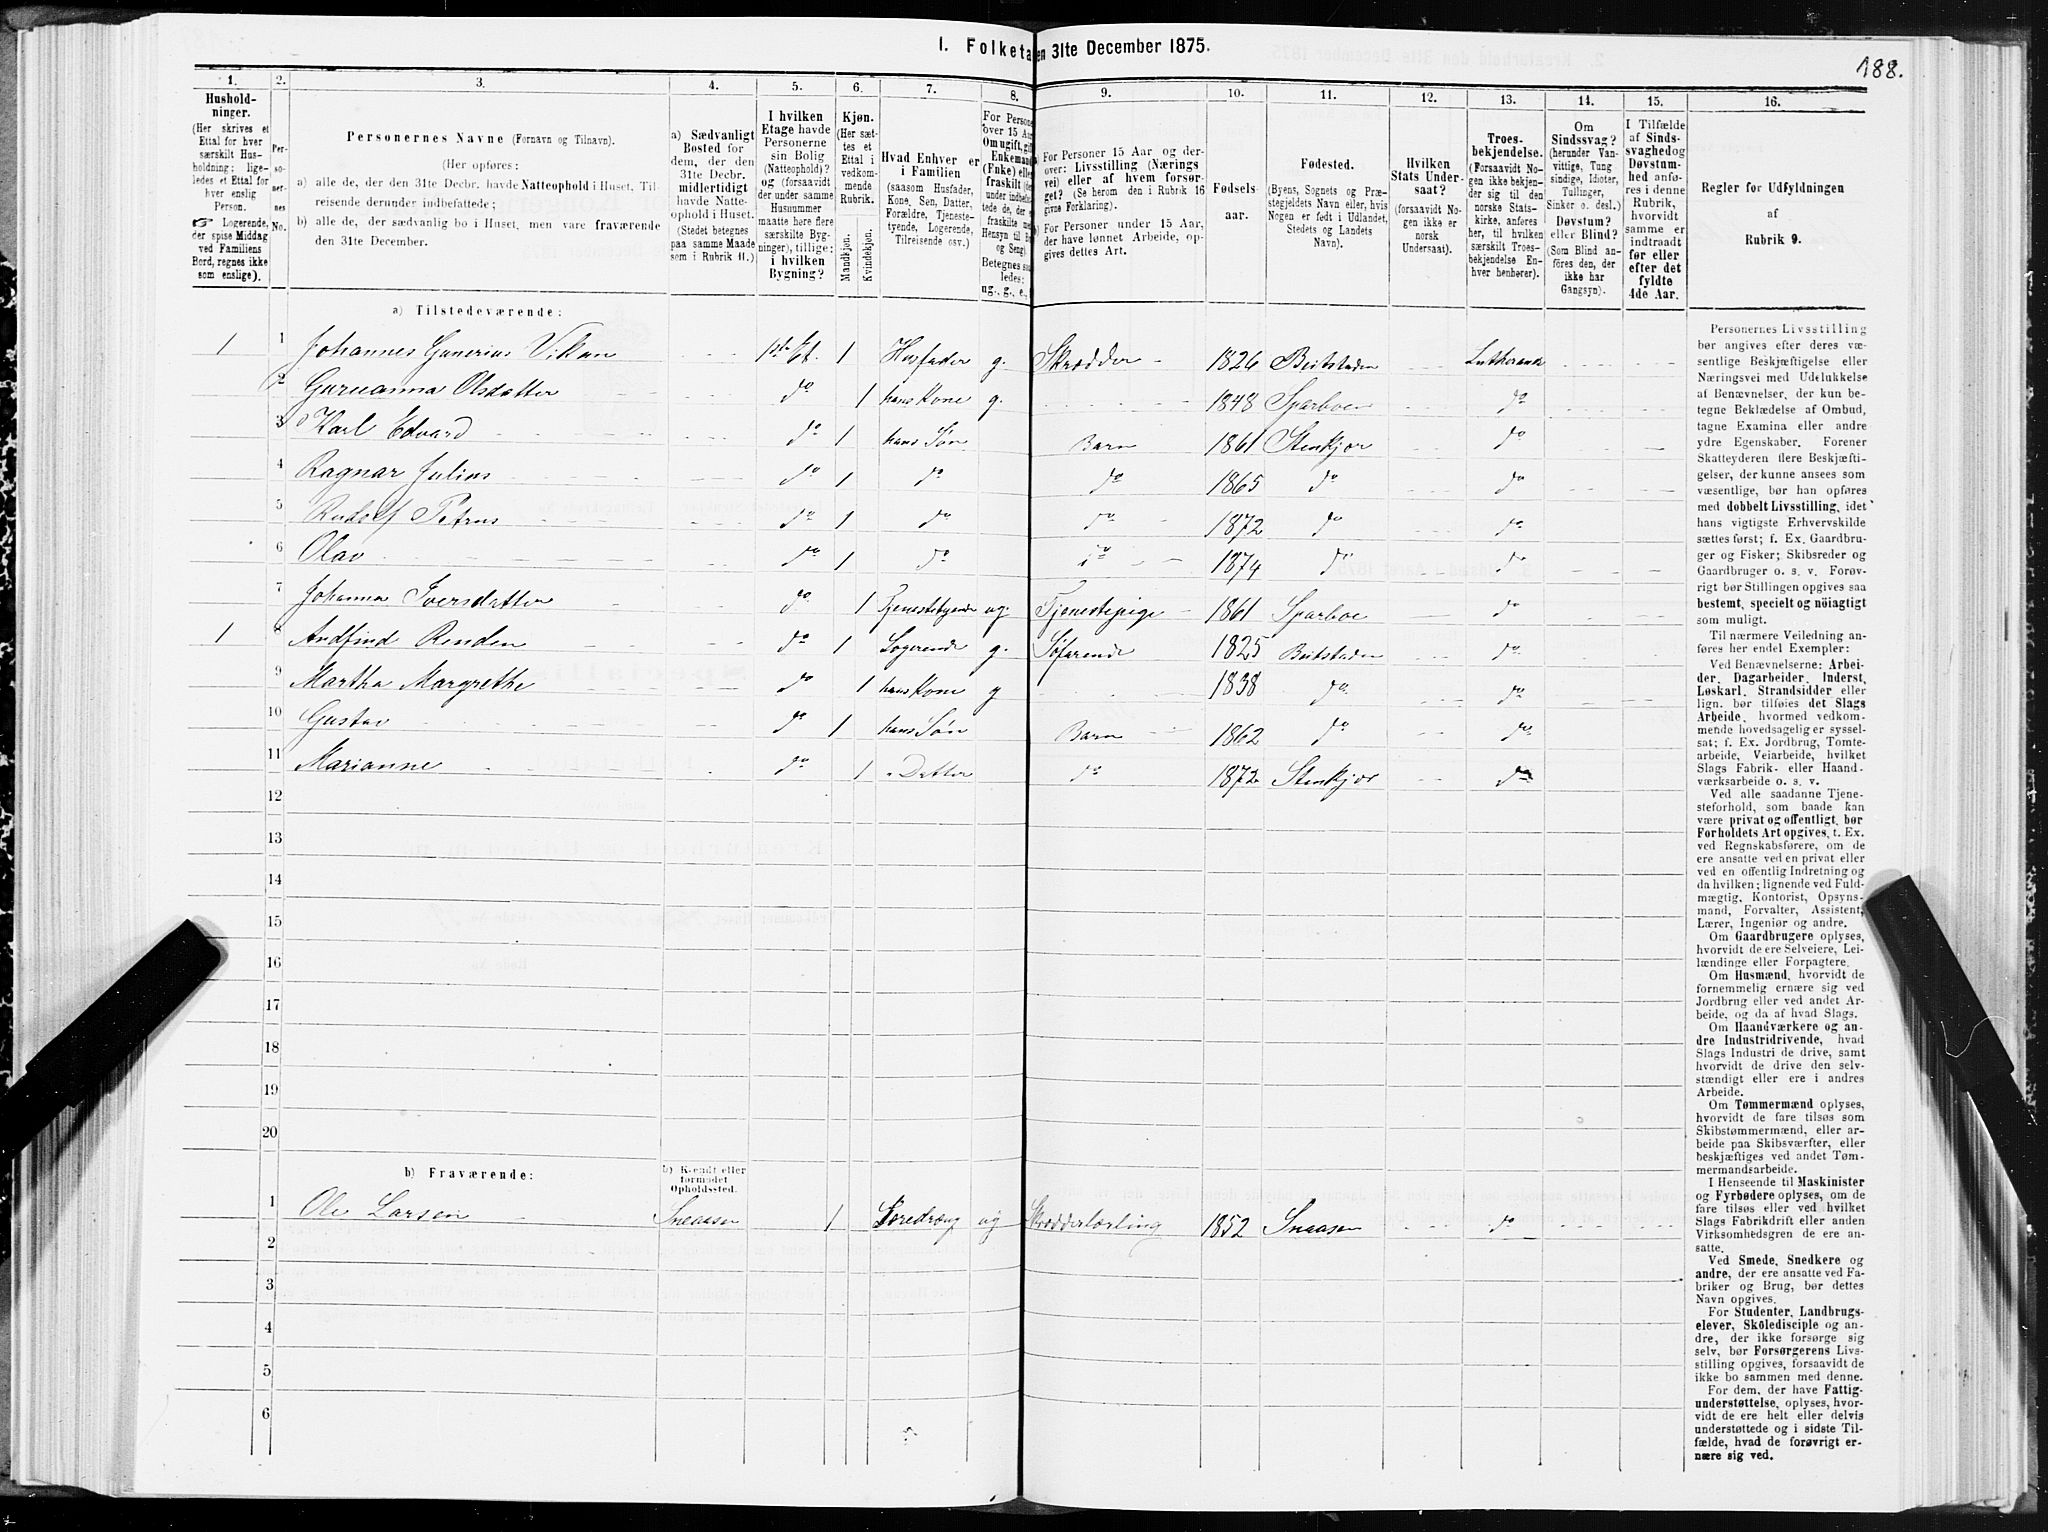 I. Folketa en 31te December 1875.
188.
1. 2. 3. 4. 5. 6. 7. 8. 9. 10. 11. 12. 13. 14. 15. 16.
Hushold-
ninger.
(Her skrives et
Ettal for hver
særskilt Hus-
holdning; lige-
ledes et Ettal for
hver enslig
Person.
☞ Logerende,
der spise Middag
ved Familiens
Bord, regnes ikke
som enslige).
Per-
so-
ner-
nes
No.
Personernes Navne (Fornavn og Tilnavn).
(Her opføres:
a) alle de, der den 31te Decbr. havde Natteophold i Huset, Til-
reisende derunder indbefattede;
b) alle de, der sædvanlig bo i Huset, men vare fraværende
den 31te December.
a) Sædvanligt
Bosted for
dem, der den
31te Decbr.
midlertidigt
havde Natte-
ophold i Huset.
(Stedet betegnes
paa samme Maade
som i Rubrik 11.)
I hvilken
Etage havde
Personerne
sin Bolig
(Natteophold)?
og (forsaavidt
der under samme
Husnummer
maatte være flere
særskilte Byg-
ninger), tillige:
i hvilken
Bygning?
Kjøn.
(Her sæt-
tes et
Ettal i
vedkom-
mende
Rubrik.
Mandkjøn.
Kvindekjøn.
Hvad Enhver er
i Familien
(saasom Husfader,
Kone, Søn, Datter,
Forældre, Tjeneste-
tyende, Logerende,
Tilreisende osv.)
For Persone
over 15 Aa
Om ugift, gif
Enkemand
(Enke) elle
fraskilt
Hensyn til B
og Seng)
Betegnes saa
ledes:
ug., g., e.,
a) For Personer 15 Aar og der-
over: Livsstilling (Nærings
vei) eller af hvem forsør-
get? (Se herom den i Rubrik 16
givne Forklaring).
b) For Personer under 15 Aar,
der have lønnet Arbeide, op-
gives dettes Art.
Fødsels-
aar.
Fødested.
(Byens, Sognets og Præ-
stegjeldets Navn eller, hvis
Nogen er født i Udlandet,
Stedets og Landets
Navn).
Hvilken
Stats Under-
saat?
(forsaavidt No-
gen ikke er
norsk
Undersaat).
Troes-
bekjendelse.
(Forsaavidt No-
gen ikke bekjen-
der sig til den
norske Stats-
kirke, anføres
her, til hvilken
særskilt Troes-
bekjendelse En-
hver henhører).
Om
Sindssvag?
(herunder Van-
vittige, Tung-
sindige, Idioter,
Tullinger,
Sinker o. desl.)
Døvstum?
eller Blind?
(Som Blind an-
føres den, der
ikke har
Gangsyn).
I Tilfælde
af Sinds-
svaghed og
Døvstum-
hed anfø-
res i denne
Rubrik,
hvorvidt
samme er
indtraadt
før eller
efter det
fyldte
4de Aar.
Regler for Udfyldningen
af
Rubrik 9.
a) Tilstedeværende:
1 1 Johannes Gunerius Vikan 1ste Et. 1 Husfader g. Skrædder 1826 Beitstaden Lutheransk
2 Guruanna Olsdatter do 1 hans Kone g. 1848 Sparboen do
3 Karl Edvard do 1 hans Søn Barn 1861 Stenkjær do
4 Ragnar Julius do 1 do do 1865 do do
5 Rudolf Petrus do 1 do do 1872 do do
6 Olav do 1 do do 1874 do do
7 Johanna Iversdatter do 1 Tjenestetyende ug. Tjenestepige 1861 Sparboe do
1 8 Andfind Renden do 1 Logerende g. Søfarende 1825 Beitstaden do
9 Martha Margrethe do 1 hans Kone g 1838 do do
10 Gustav do 1 hans Søn Barn 1862 do do
11 Marianne do 1 " Datter do 1872 Stenkjær do
12
13
14
15
16
17
18
19
20
b) Fraværende:
b) Kjendt eller
formodet
Opholdssted.
1 Ole Larsen Snaasen 1 Læredræng ug Skrædderlærling 1852 Snaasen do
2
3
4
5
6
Personernes Livsstilling
bør angives efter deres væ-
sentlige Beskjæftigelse eller
Næringsvei med Udelukkelse
af Benævnelser, der kun be-
tegne Beklædelse af Ombud,
tagne Examina eller andre
ydre Egenskaber. Forener
Skatteyderen flere Beskjæfti-
gelser, der kunne ansees som
væsentlige, bør han opføres
med dobbelt Livsstilling, idet
hans vigtigste Erhvervskilde
sættes først; f. Ex. Gaardbru-
ger og Fisker; Skibsreder og
Gaardbruger o. s. v. Forøv-
rigt bør Stillingen opgives saa
bestemt, specielt og nöiagtigt
som muligt.
Til nærmere Veiledning an-
føres her endel Exempler:
Ved Benævnelserne: Arbei-
der, Dagarbeider, Inderst,
Løskarl, Strandsidder eller
lign. bør tilføies det Slags
Arbeide, hvormed vedkom-
mende hovedsagelig er syssel-
sat; f. Ex. Jordbrug, Tomte-
arbeide, Veiarbeide, hvilket
Slags Fabrik- eller Haand-
værksarbeide o. s. v.
Ved alle saadanne Tjene-
steforhold, som baade kan
være privat og offentligt, bør
Forholdets Art opgives, t. Ex.
ved Regnskabsførere, om de
ere ansatte ved en privat eller
ved en offentlig Indretning og
da hvilken; lignende ved Fuld-
mægtig, Kontorist, Opsyns-
mand, Forvalter, Assistent,
Lærer, Ingeniør og andre.
Om Gaardbrugere oplyses,
hvorvidt de ere Selveiere, Lei-
lændinge eller Forpagtere.
Om Husmænd, hvorvidt de
fornemmelig ernære sig ved
Jordbrug eller ved andet Ar-
beide, og da af hvad Slags.
Om Haandværkere og an-
dre Industridrivende, hvad
Slags Industri de drive, samt
hvorvidt de drive den selv-
stændigt eller ere i andres
Arbeide.
Om Tømmermænd oplyses,
hvorvidt de fare tilsøs som
Skibstømmermænd, eller ar-
beide paa Skibsværfter, eller
beskjæftiges ved andet Tøm-
mermandsarbeide.
I Henseende til Maskinister
og Fyrbødere oplyses, om de
fare tilsøs eller ved hvilket
Slags Fabrikdrift eller anden
Virksomhedsgren de ere an-
satte.
Ved Smede, Snedkere og
andre, der ere ansatte ved Fa-
briker og Brug, bør dettes
Navn opgives.
For Studenter, Landbrugs-
elever, Skoledisciple og an-
dre, der ikke forsørge sig
selv, bør Forsørgerens Livs-
stilling opgives, forsaavidt de
ikke bo sammen med denne.
For dem, der have Fattig-
understøttelse, oplyses, hvor-
vidt de ere helt eller delvis
understøttede og i sidste Til-
fælde, hvad de forøvrigt er-
nære sig ved.